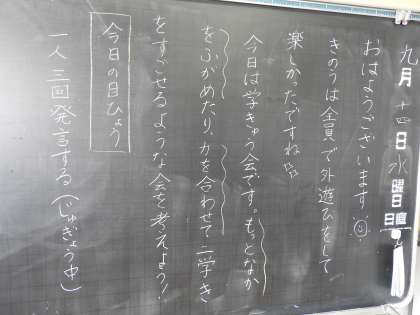 九月十四日水曜日
日直
おはようございます
きのうは全員で外遊びをして
楽しかったですね
今日は学きゅう会です。もっとなか
をふかめたり、力を合わせて二学き
をすごせるような会を考えよう!
今日の目ひょう
一人三回発言する(じゅぎょう中)